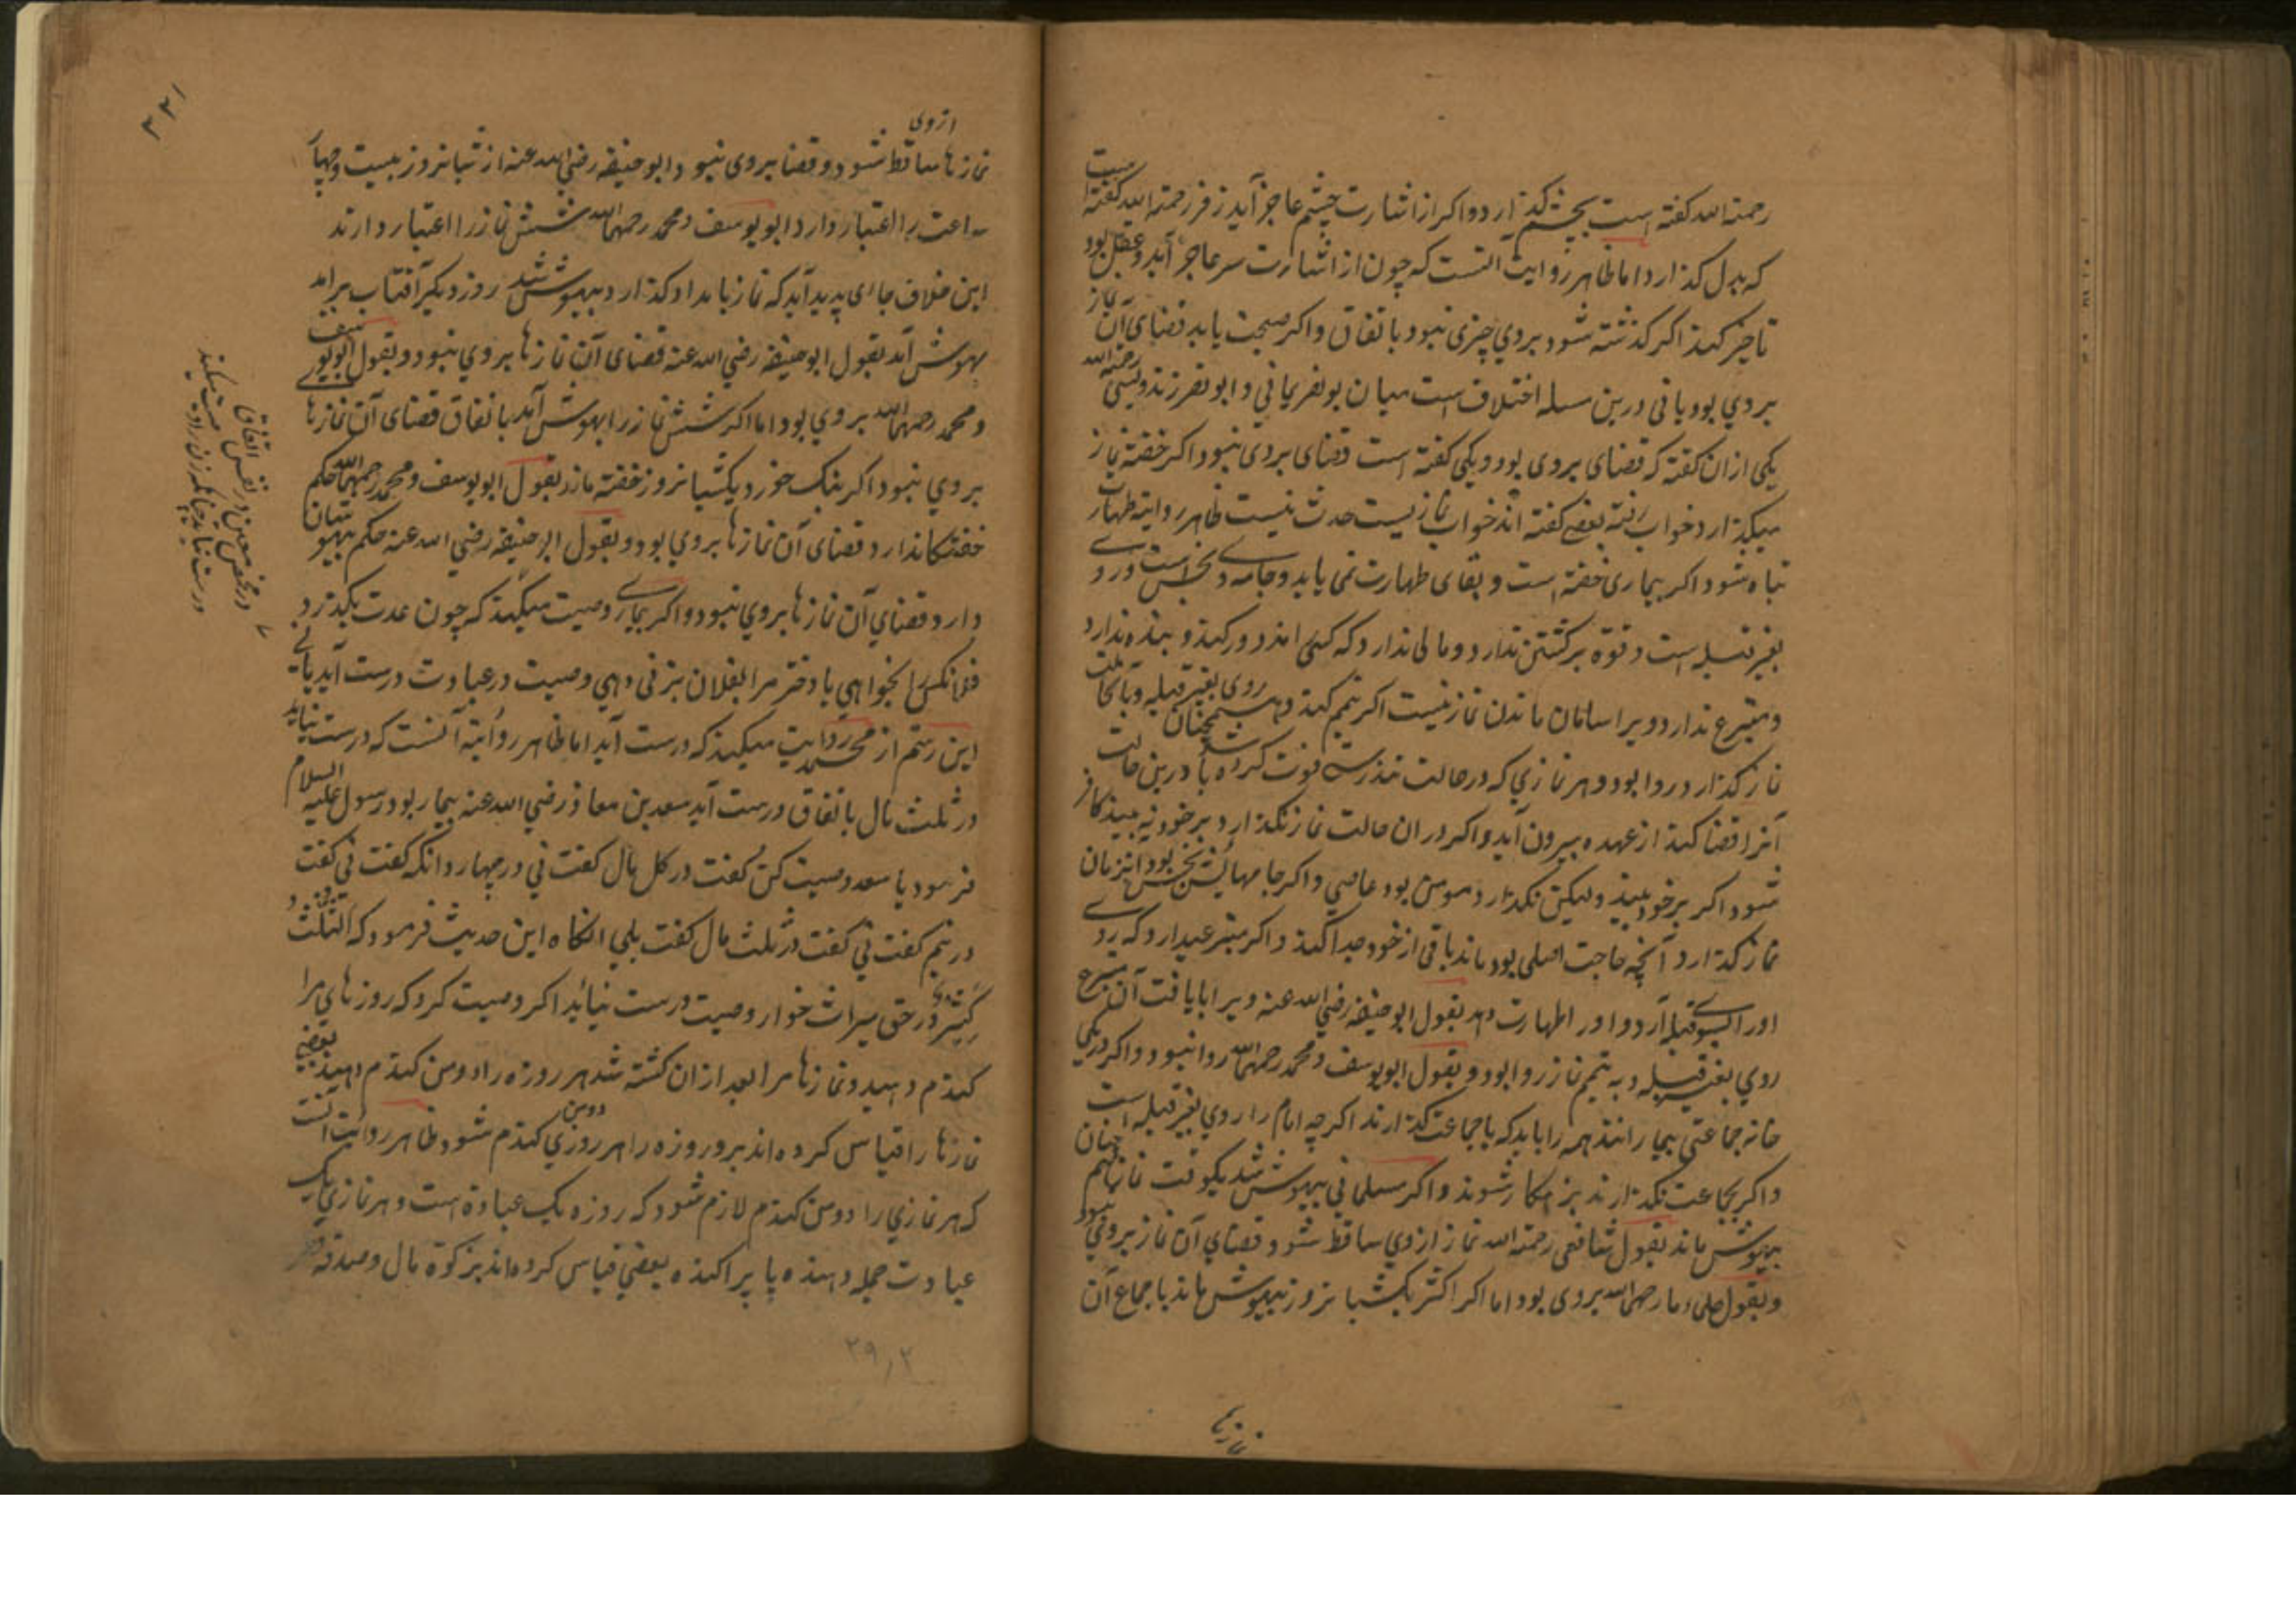 رحمة الله کفته است بچشم کذارد و اکر از اشارت چشم عاجز آید زفر رحمة الله کفته است
که بدل کذارد اما ظاهر روایت آنست که چون از اشارت سر عاجز آید و عقل بود
تاخیر کند اکر کذشته شود بروی چیزی نبود باتفاق و اکر صحت یابد قضای آن نماز
بروی بود یا نی درین مسله اختلاف است میان بو نصر و ابو نصر رحمة الله
یکی ازان کفته که قضای بروی بود و یکی کفته است قضای بروی نبود اکر خفته نماز
میکذارد خواب رفته بعضی کفته اند خواب نماز نیست حدث نیست ظاهر روایة طهارت
تباه شود اکر بیماری خفته است و بقای طهارت نمی یابد و جامه وی نجس است و روی
بغیر قبله است و قوة برکشتن ندارد و مالی ندارد که کسی مزدور کند و بنده ندارد
و متبرع ندارد ویرا سامان ماندن نماز نیست اکر تیمم کند و همچنان روی بغیر قبله و با نجاست
نماز کذارد روا بود و هر نمازی که در حالت تندرستی فوت کرده باشد درین حالت
آنرا قضا کند از عهده بیرون آید و اکر در ان حالت نماز نکذارد بر خود نه بیند کافر
شود اکر بر خود بیند ولیکن نکذارد مومن بود عاصی و اکر جامهایش نجس بود انزمان
نماز کذارد آنچه حاجت اصلی بود ماند باقی از خود جدا کند و اکر متبرعی دارد که روی
اورا بسوی قبله آرد و اورا طهارت دهد بقول ابو حنیفه رضی الله عنه ویرا با یافت آن متبرع
روی بغیر قبله و به تیمم نماز روا بود و بقول ابو یوسف و محمد رحمهما الله روا نبود و اکر در یکی
خانه جماعتی بیمارانند همه را باید که با جماعت کذارند اکر چه امام را روی بغیر قبله است
و اکر بجماعت نکذارند بزهکار شوند و اکر مسلمانی بیهوش شد یکوقت نماز همچنان
بیهوش ماند بقول شافعی رحمة الله نماز ازوی ساقط شود و قضای آن نماز بروی نبود
و بقول علماء ما رحمهم الله بروی بود اما اکر اکثر یکشبانروز بیهوش ماند باجماع آن
نمازها
۳۲۱
نمازها ازوی ساقط شود و قضا بروی نبود و ابو حنیفه رضی الله عنه از شبانروز بیست و چهار
ساعت را اعتبار دارد و ابو یوسف و محمد رحمهما الله شش نماز را اعتبار دارند
این خلاف جای پدید آید که نماز بامداد کذارد بیهوش شد روز دیکر آفتاب برامد
بهوش آمد بقول ابو حنیفه رضی الله عنه قضای آن نمازها بروی نبود و بقول ابو یوسف
و محمد رحمهما الله بروی بود اما اکر شش نماز را بهوش آمد باتفاق قضای آن نمازها
بروی نبود اکر بنک خورد یکشبانروز خفته ماند بقول ابو یوسف و محمد رحمهما الله حکم
خفتکان دارد قضای آن نمازها بروی بود و بقول ابو حنیفه رضی الله عنه حکم بیهوشان
دارد قضای آن نمازها بروی نبود و اکر بیماری وصیت میکند که چون عدت بکذرد
فلانکس را بخواهی یا دختر مرا بفلان بزنی دهی وصیت در عبادت درست آید یا نی
این رستم از محمد روایت میکند که درست آید اما ظاهر روایة آنست که درست نیاید
در ثلث مال باتفاق درست آید سعد بن معاذ رضی الله عنه بیمار بود رسول علیه السلام
فرمود یا سعد وصیت کن کفت در کل مال کفت نی در چهار دانکه کفت نی کفت
در نیم کفت نی کفت در ثلث مال کفت بلی انکاه این حدیث فرمود که الثلث و الثلث
کثیر و در حق میراث خوار وصیت درست نیاید اکر وصیت کرد که روزهای مرا
کندم دهید و نمازها مرا بعد ازان کشته شد هر روزه را دو من کندم دهند بعضی
نمازها را قیاس کرده اند بر روزه را هر روزی دو من کندم شود و ظاهر روایت آنست
که هر نمازی را دو من کندم لازم شود که روزه یک عبادة است و هر نمازی یک
عبادت جمله دهند یا پراکنده بعضی قیاس کرده اند بزکوة مال و صدقه فطر
در شخص معین در نفس اتفاق
وصیت میکند
درست نیاید چنانکه زن را
۲۹٫۲